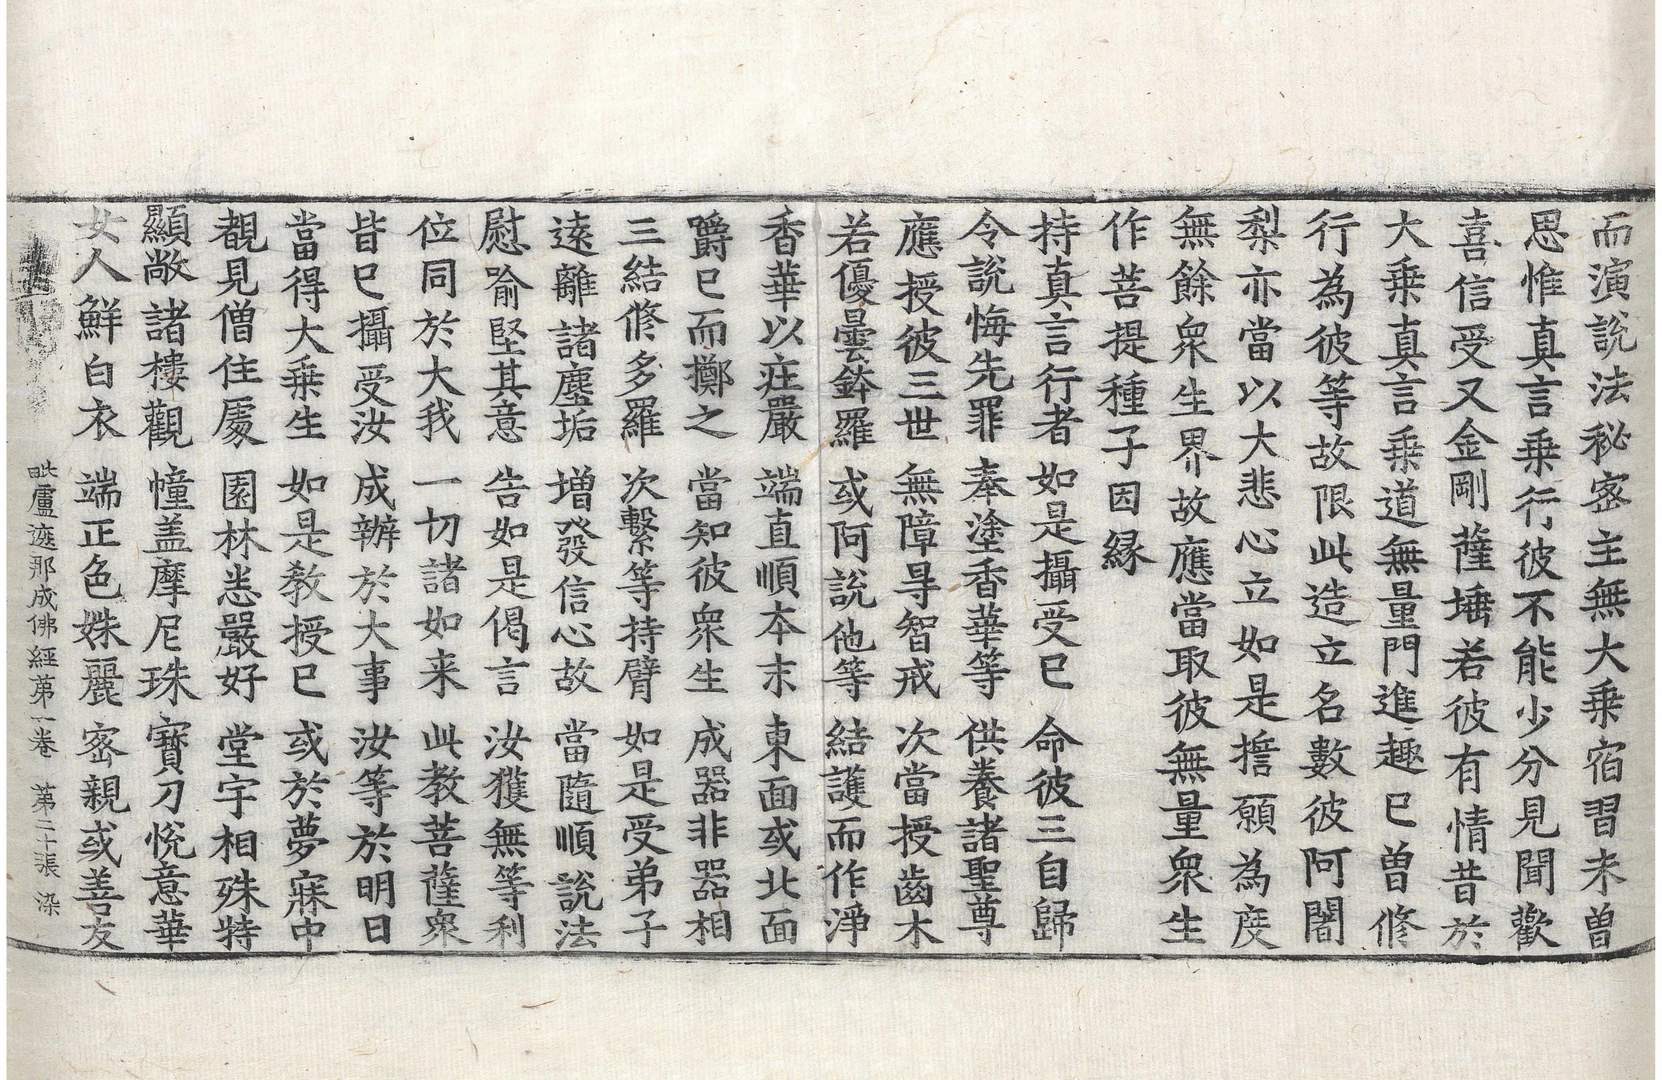 而演說法秘密主無大乘宿習未曾
思惟真言乘行彼不能少分見聞歡
喜信受又金剛薩埵若彼有情昔於
大乘真言乘道無量門進趣已曾修
行為彼等故限此造立名數彼阿闍
梨亦當以大悲心立如是擔願為度
無餘衆生界故應當取彼無量衆生
作菩提種子因緣
持真言行者 如是攝受已 命彼三自歸
令說悔先罪 奉塗香華等 供養諸聖尊
應授彼三世 無障㝵智戒 次當授齒木
若優曇鉢羅 或阿說他等 結護而作淨
香華以莊嚴 端直順本末 東面或北面
嚼已而擲之 當知彼衆生 成器非器相
三結修多羅 次繫等持臂 如是受弟子
遠離諸塵垢 增發信心故 當隨順說法
慰喻堅其意 告如是偈言 汝獲無等利
位同於大我 一切諸如来 此教菩薩衆
皆已攝受汝 成辦於大事 汝等於明日
當得大乘生 如是教授已 或於夢寐中
覩見僧住處 園林悉嚴好 堂宇相殊特
顯敞諸樓觀 幢盖摩尼珠 寶刀悅意華
女人鮮白衣 端正色姝麗 密親或善友
毗盧遮那成佛經第一卷 第二十張 染